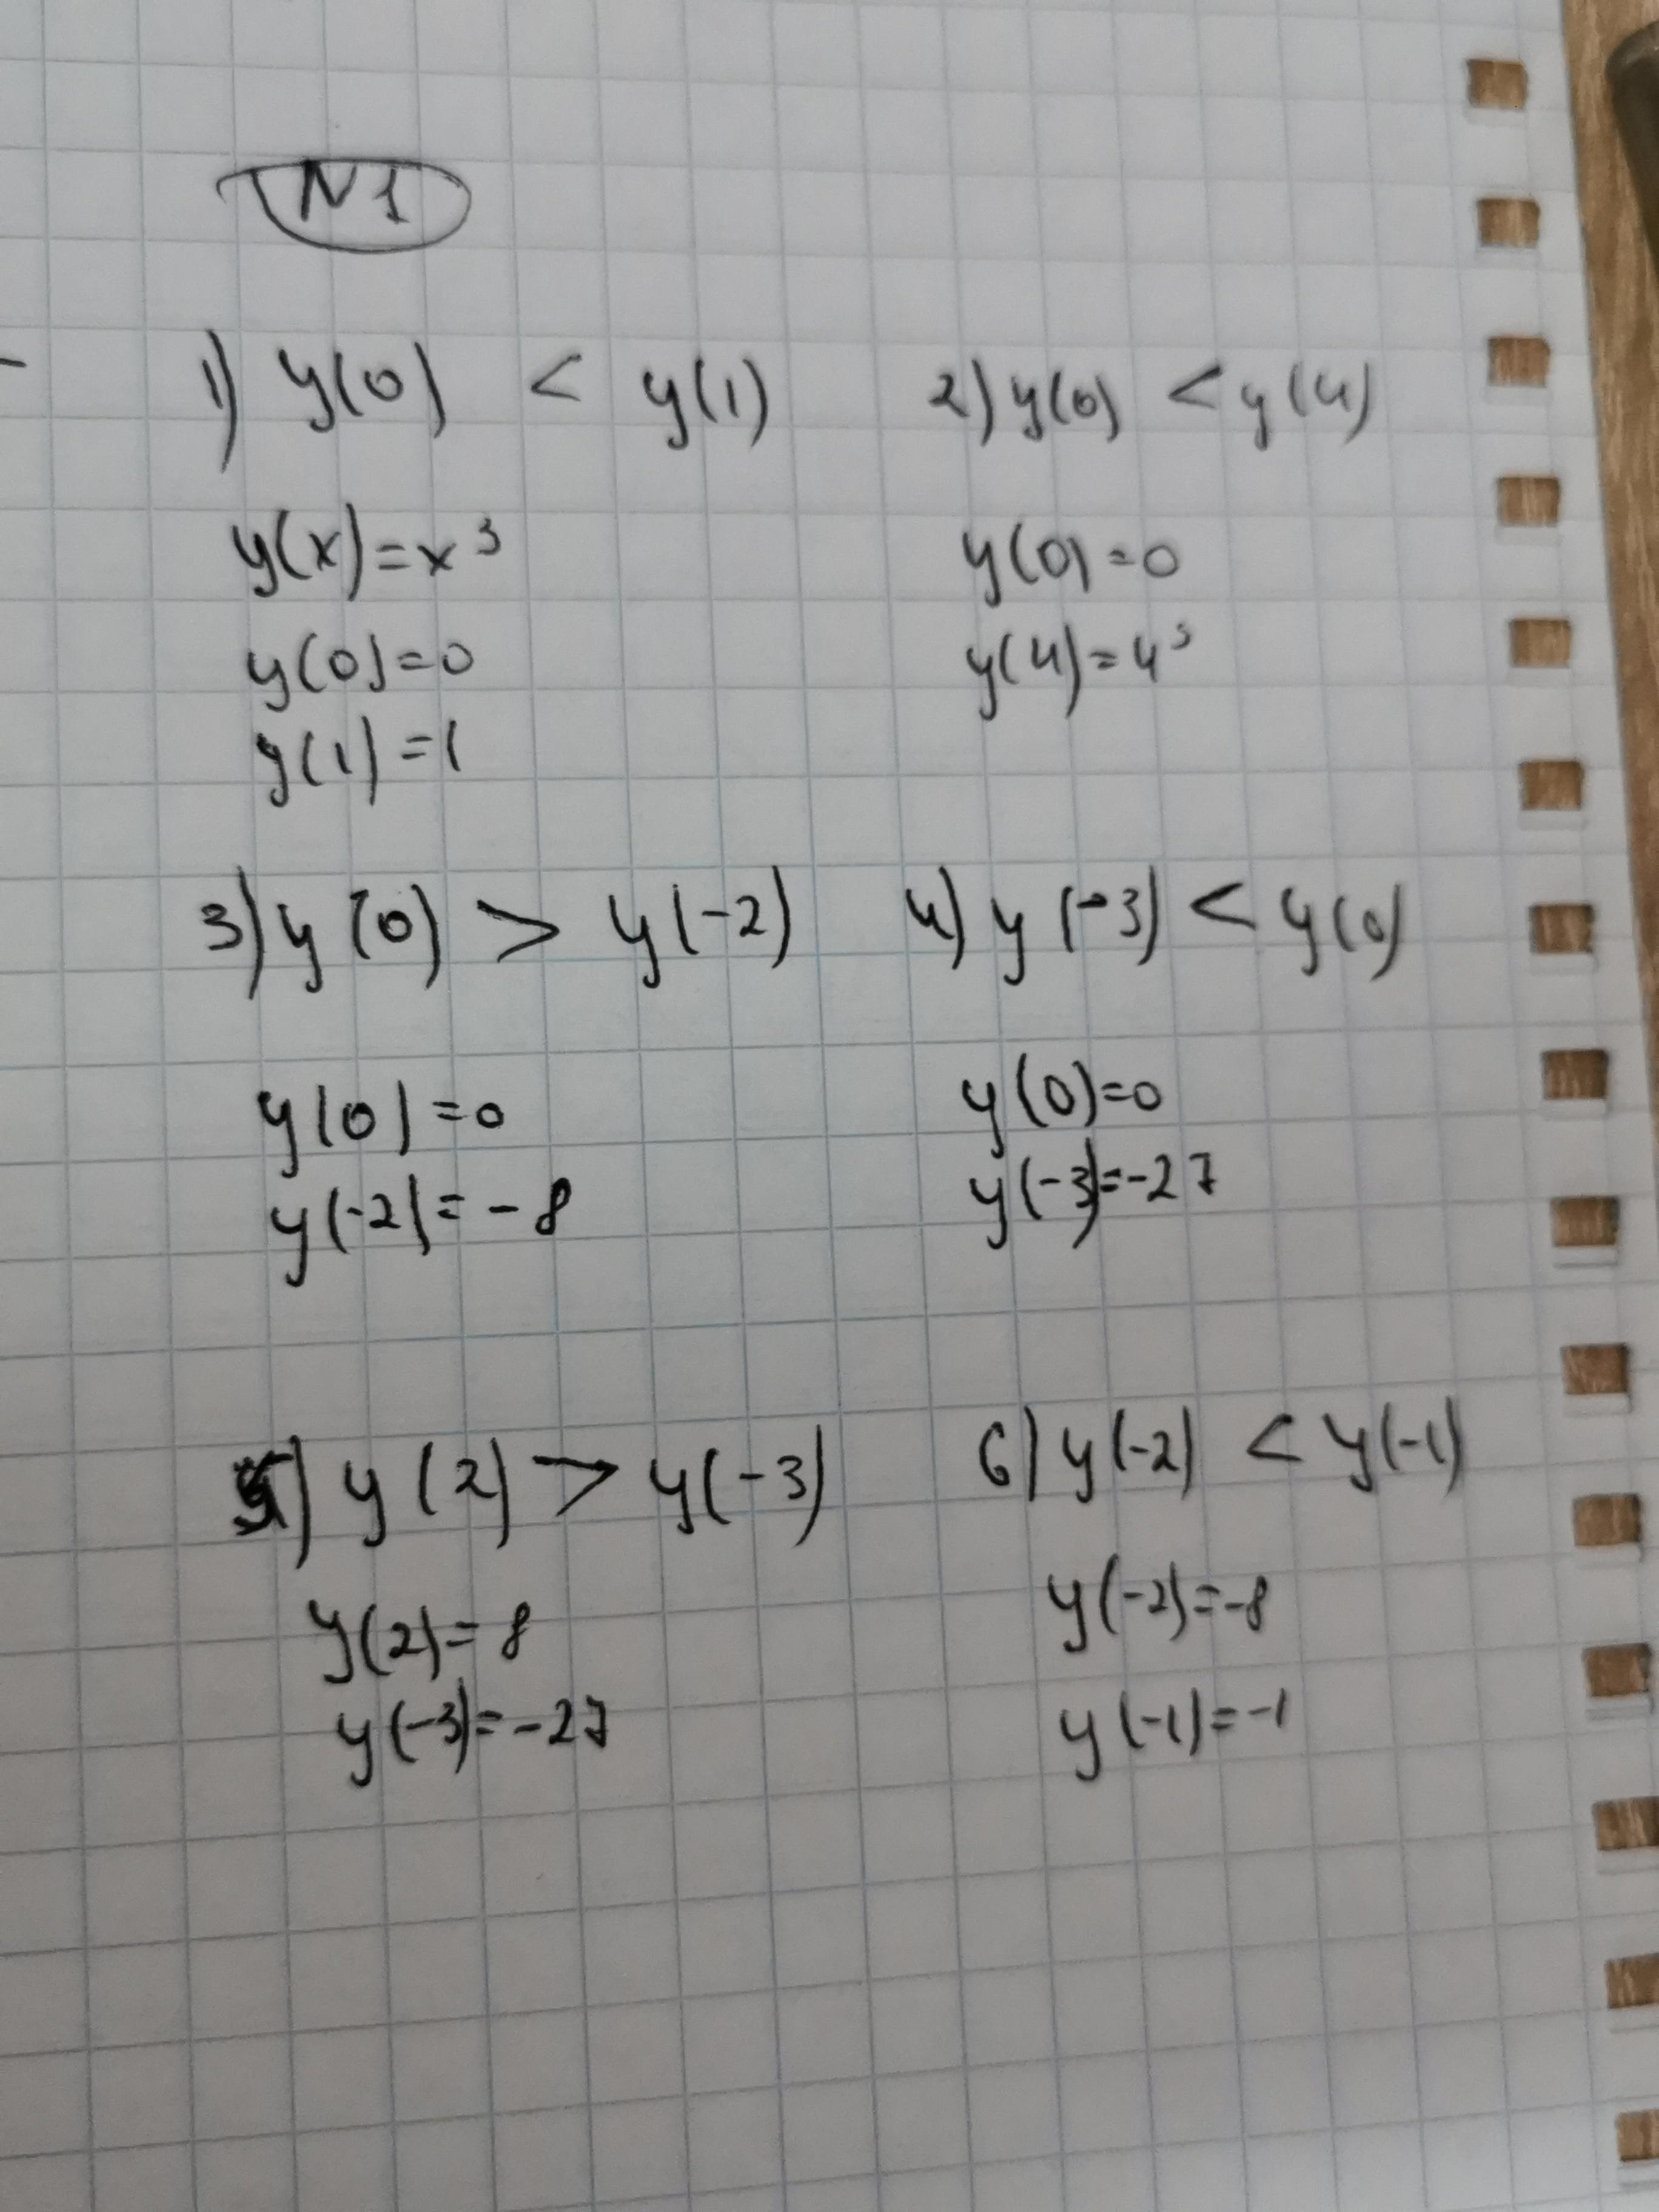 N1
1) y(0) < y(1)
2) y(0) < y(4)
y(x)=x³
y(0)=0
y(1)=1
y(0)=0
y(4)=4³
3) y(0) > y(-2)
4) y(-3) < y(0)
y(0)=0
y(-2)=-8
y(0)=0
y(-3)=-27
5) y(2) > y(-3)
6) y(-2) < y(-1)
y(2)=8
y(-3)=-27
y(-2)=-8
y(-1)=-1